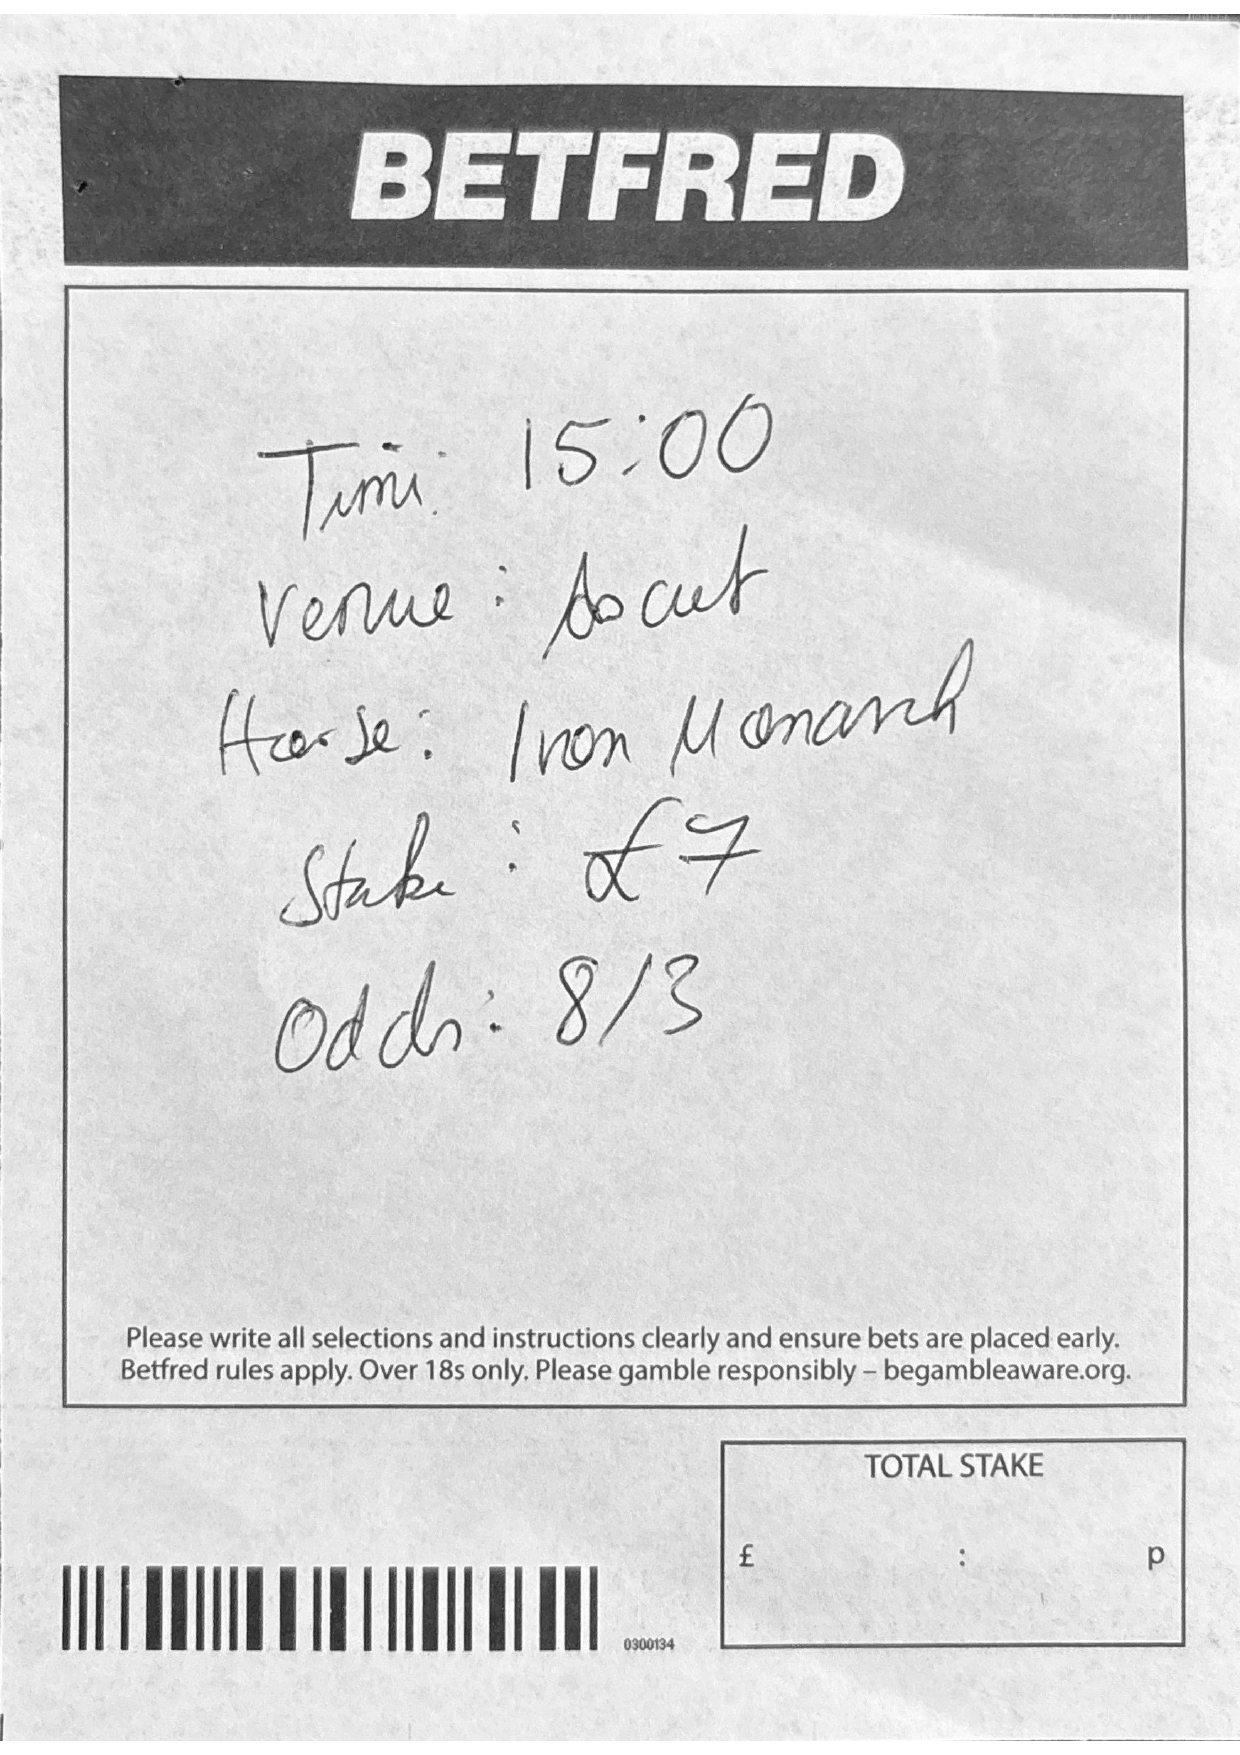 BETFRED
Time: 15:00
Venue: Ascot
Horse: Iron Monarch
Stake: £7
Odds: 8/3
Please write all selections and instructions clearly and ensure bets are placed early.
Betfred rules apply. Over 18s only. Please gamble responsibly – begambleaware.org.
TOTAL STAKE
£ : p
0300134